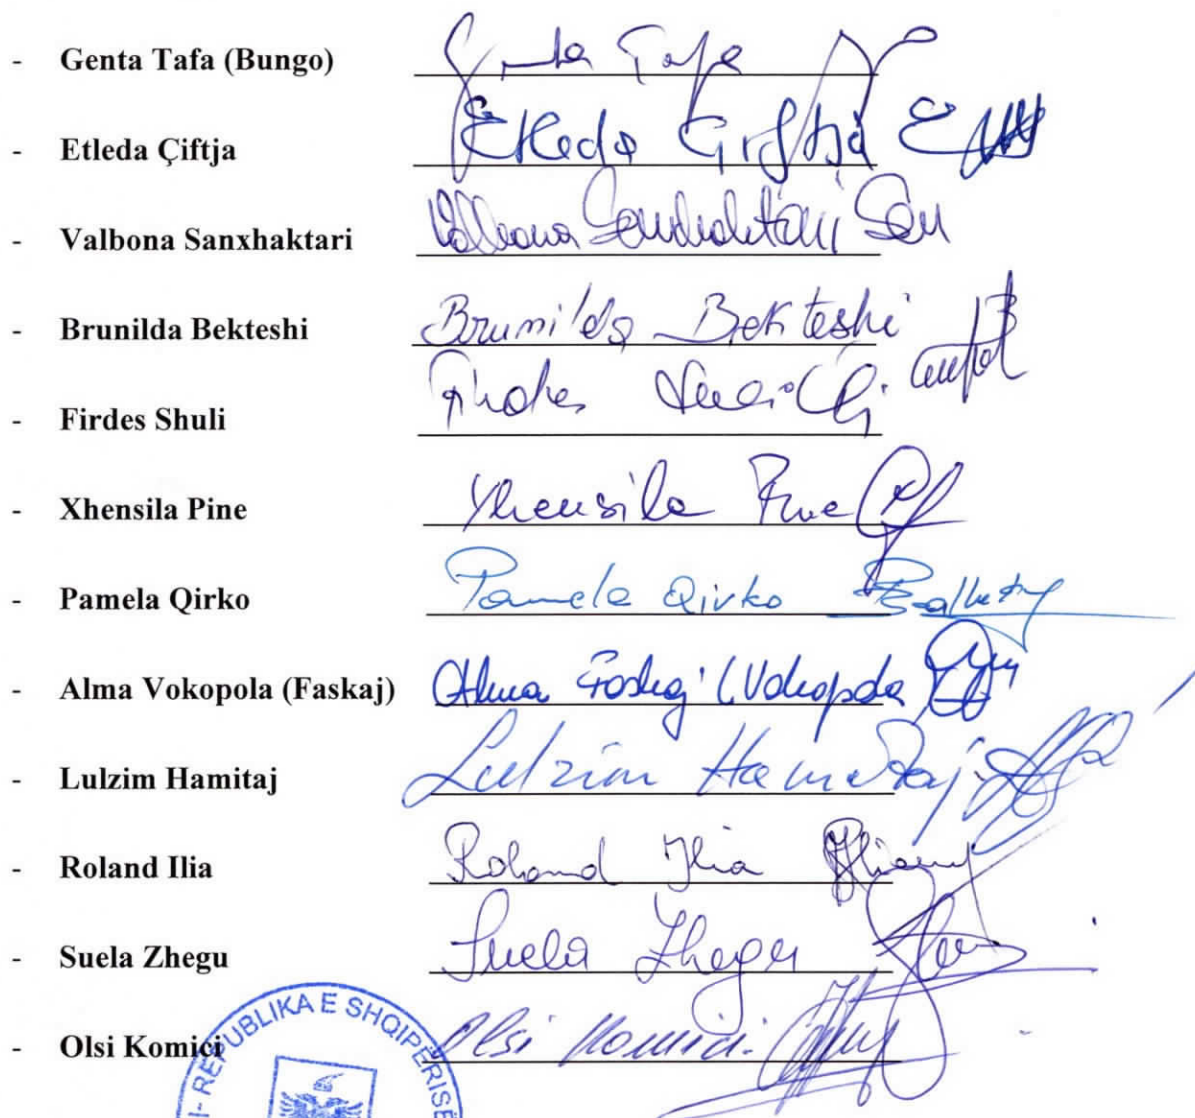 - Genta Tafa (Bungo) Genta Tafa
- Etleda Çiftja Etleda Çiftja
- Valbona Sanxhaktari Valbona Sanxhaktari San
- Brunilda Bekteshi Brunilda Bekteshi
- Firdes Shuli Firdes
- Xhensila Pine Xhensila Pine
- Pamela Qirko Pamela Qirko
- Alma Vokopola (Faskaj) Alma Faskaj (Vokopola
- Lulzim Hamitaj Lulzim Hamitaj
- Roland Ilia Roland Ilia
- Suela Zhegu Suela Zhegu
- Olsi Komici Olsi Komici
I- REPUBLIKA E SHQIPËRISË